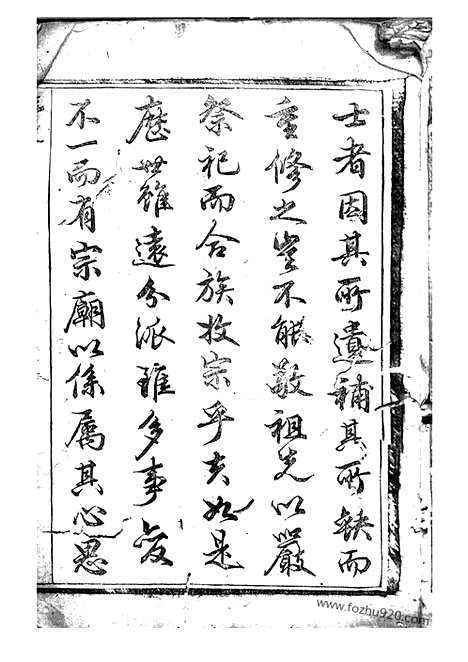 士者因其所遺補其所缺而
重修之豈不能敬祖先以嚴
祭祀而合族收宗乎夫如是
歷世雖遠分派雖多事變
不一而有宗廟以係属其心思
www.fozhu920.com